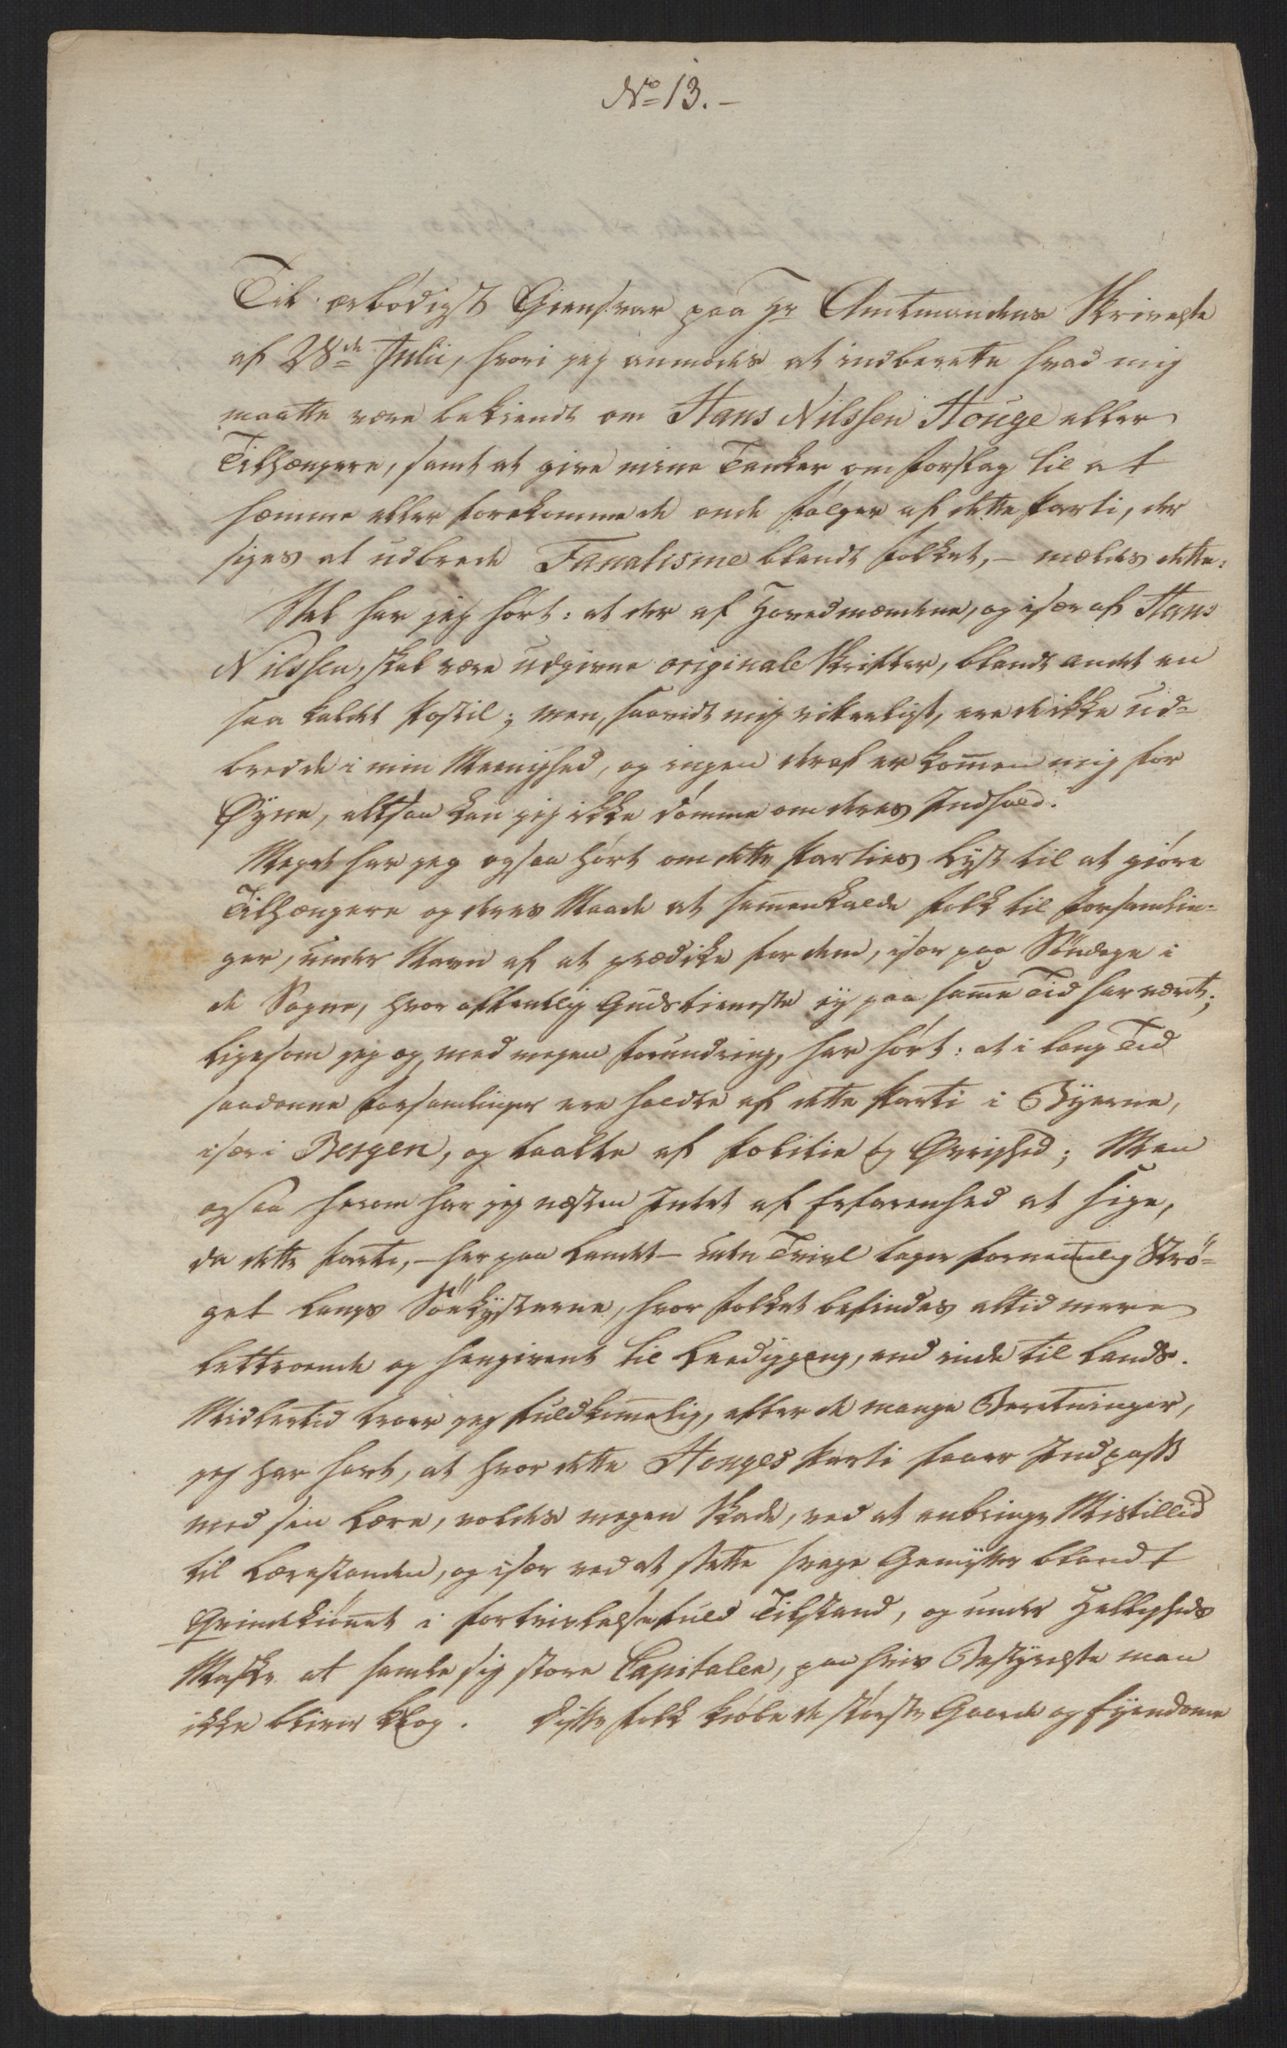 No 13.-
Til ærbödigst Giensvar paa Hr Amtmandens Skrivelse
af 28de Julii, hvori jeg anmodes at indberette hvad mig
maatte være bekiendt om Hans Nilssen Houge eller
Tilhængere, samt at give mine Tanker om Forslag til at
hæmme eller forekomme de onde Følger af dette Parti, der
siges at udbrede Fanatisme blandt Folket, - meldes dette:
Vel har jeg hört: at der af Hovedmændene, og især af Hans
Nilssen, skal være udgivne originale Skrifter, blandt andet en
saa kaldet Postil; men, saavidt mig vitterligt, ere de ikke ud-
bredde i min Meenighed, og ingen deraf er kommen mig for
Øyne, altsaa kan jeg ikke dömme om deres Indhold.
Meget har jeg ogsaa hört om dette Parties Lyst til at giöre
Tilhængere og deres Maade at sammenkalde Folk til Forsamlin-
ger, under Navn af at prædike for dem, især paa Söndage i
de Sogne, hvor offentlig Gudstieneste ey paa samme Tid har været;
ligesom jeg og, med megen Forundring, har hört: at i lang Tid
saadanne Forsamlinger ere holdte af dette Parti i Byerne,
især i Bergen, og taalte af Politie og Øvrighed; Men
ogsaa herom har jeg næsten Intet af Erfarenhed at sige,
da dette Parti, - her paa Landet - uden Tvivl tager fornemmelig Strö-
get langs Söekysterne, hvor Folket befindes altid mere
lettroende og hengivent til Leediggang, end inde til Lands.
Midlertid troer jeg fuldkommelig, efter de mange Beretninger,
jeg har hört, at hvor dette Houges Parti faaer Indpass
med sin Lære, voldes megen Skade, ved at anbringe Mistillid
til Lærestanden, og især ved at sette svage Gemytter blandt
Qvindekiönnet i fortvivlelsefuld Tilstand, og under Helligheds
Maske at samle sig store Capitaler, paa hvis Bestyrelse man
ikke bliver klog. Disse Folk kiöbe de störste Gaarde og Eyendomme